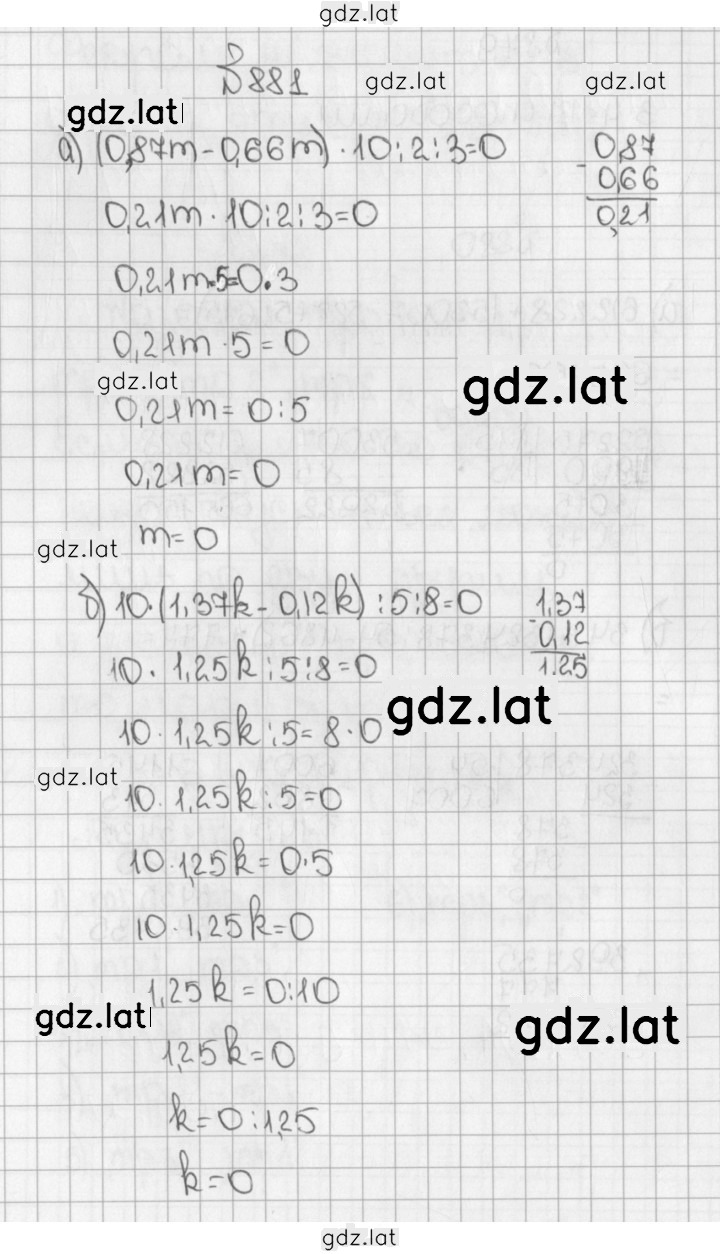 gdz.lat
№881
gdz.lat
gdz.lat
gdz.lat
а) (0,87m-0,66m)·10:2:3=0
0,87
- 0,66
0,21
0,21m·10:2:3=0
0,21m·5=0·3
0,21m·5=0
gdz.lat
gdz.lat
0,21m=0:5
0,21m=0
m=0
gdz.lat
б) 10·(1,37k-0,12k):5:8=0
- 1,37
0,12
1.25
10·1,25k:5:8=0
gdz.lat
10·1,25k:5=8·0
gdz.lat
10·1,25k:5=0
10·1,25k=0·5
10·1,25k=0
1,25k=0:10
gdz.lat
gdz.lat
1,25k=0
k=0:1,25
k=0
gdz.lat